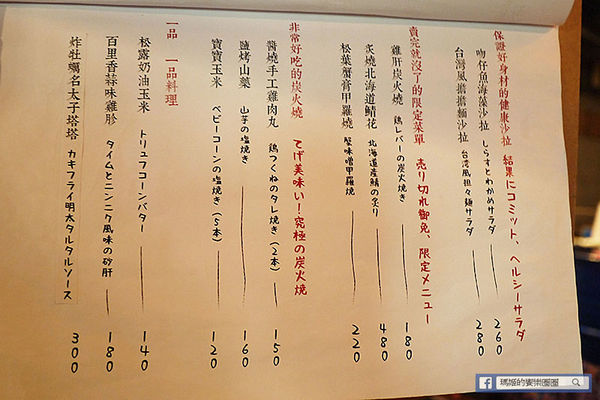 保證好身材的健康沙拉 結果にコミット、ヘルシーサラダ
吻仔魚海藻沙拉 しらすとわかめサラダ 260
台灣風擔擔麵沙拉 台湾風担々麺サラダ 280
賣完就沒了的限定菜單 売り切れ御免、限定メニュー
雞肝炭火燒 鶏レバーの炭火焼き 180
炙燒北海道鯖花 北海道産鯖の炙り 480
松葉蟹膏甲羅燒 蟹味噌甲羅焼 220
非常好吃的炭火燒 てげ美味い!究極の炭火焼
醬燒手工雞肉丸 鶏つくねのタレ焼き(2本) 150
鹽烤山藥 山芋の塩焼き 160
寶寶玉米 ベビーコーンの塩焼き(5本) 120
一品 一品料理
松露奶油玉米 トリュフコーンバター 140
百里香蒜味雞胗 タイムとニンニク風味の砂肝 180
炸牡蠣名太子塔塔 カキフライ明太タルタルソース 300
瑪姬的饗樂圈圈